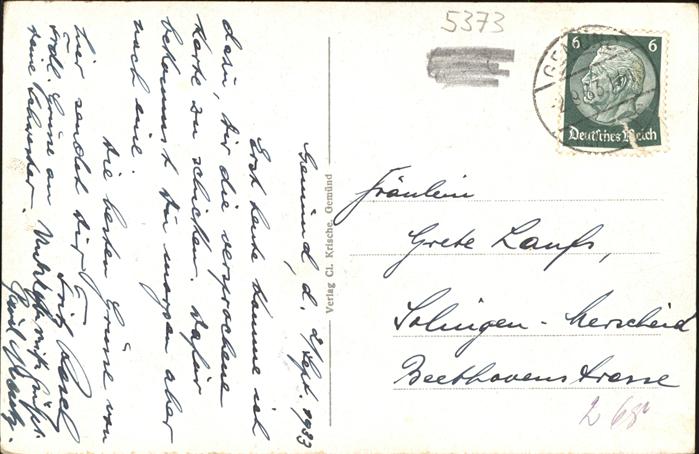 5373
6 6
Deutsches Reich
Gemünd, d. 2/Sept. 1933
Erst heute komme ich
dazu, Dir die versprochene
Karte zu schicken. Dafür
bekommst Du morgen aber
noch eine.
Die besten Grüsse von
hier sendet Dir
Fritz
Frdl. Grüsse an
Deine Schwester.
Verlag Cl. Krische, Gemünd
Fräulein
Grete Laufs,
Solingen-Merscheid
Beethovenstrasse